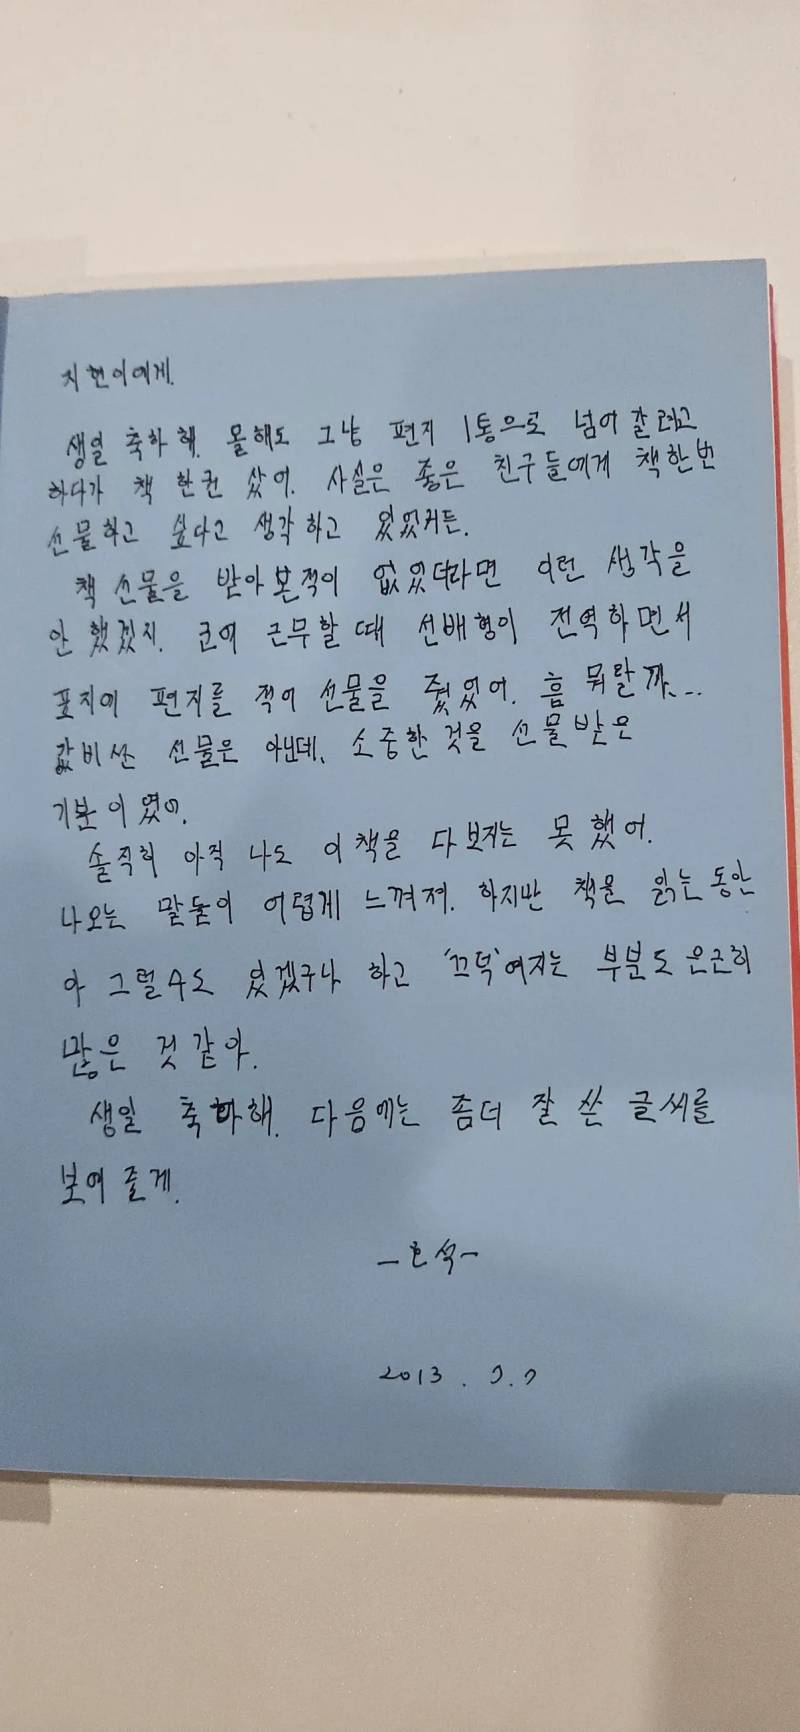 지현이에게.
생일 축하해. 올해도 그냥 편지 1통으로 넘어갈려고
하다가 책 한권 샀어. 사실은 좋은 친구들에게 책한번
선물하고 싶다고 생각하고 있었거든.
책 선물을 받아본적이 없었더라면 이런 생각을
안 했겠지. 군에 근무할때 선배형이 전역하면서
표지에 편지를 적어 선물을 줬었어. 흠 뭐랄까....
값비싼 선물은 아닌데, 소중한 것을 선물받은
기분이였어.
솔직히 아직 나도 이책을 다보지는 못했어.
나오는 말들이 어렵게 느껴져. 하지만 책을 읽는동안
아 그럴수도 있겠구나 하고 '끄덕'여지는 부분도 은근히
많은 것 같아.
생일 축하해. 다음에는 좀더 잘 쓴 글씨를
보여줄게.
-호석-
2013. 7. 7